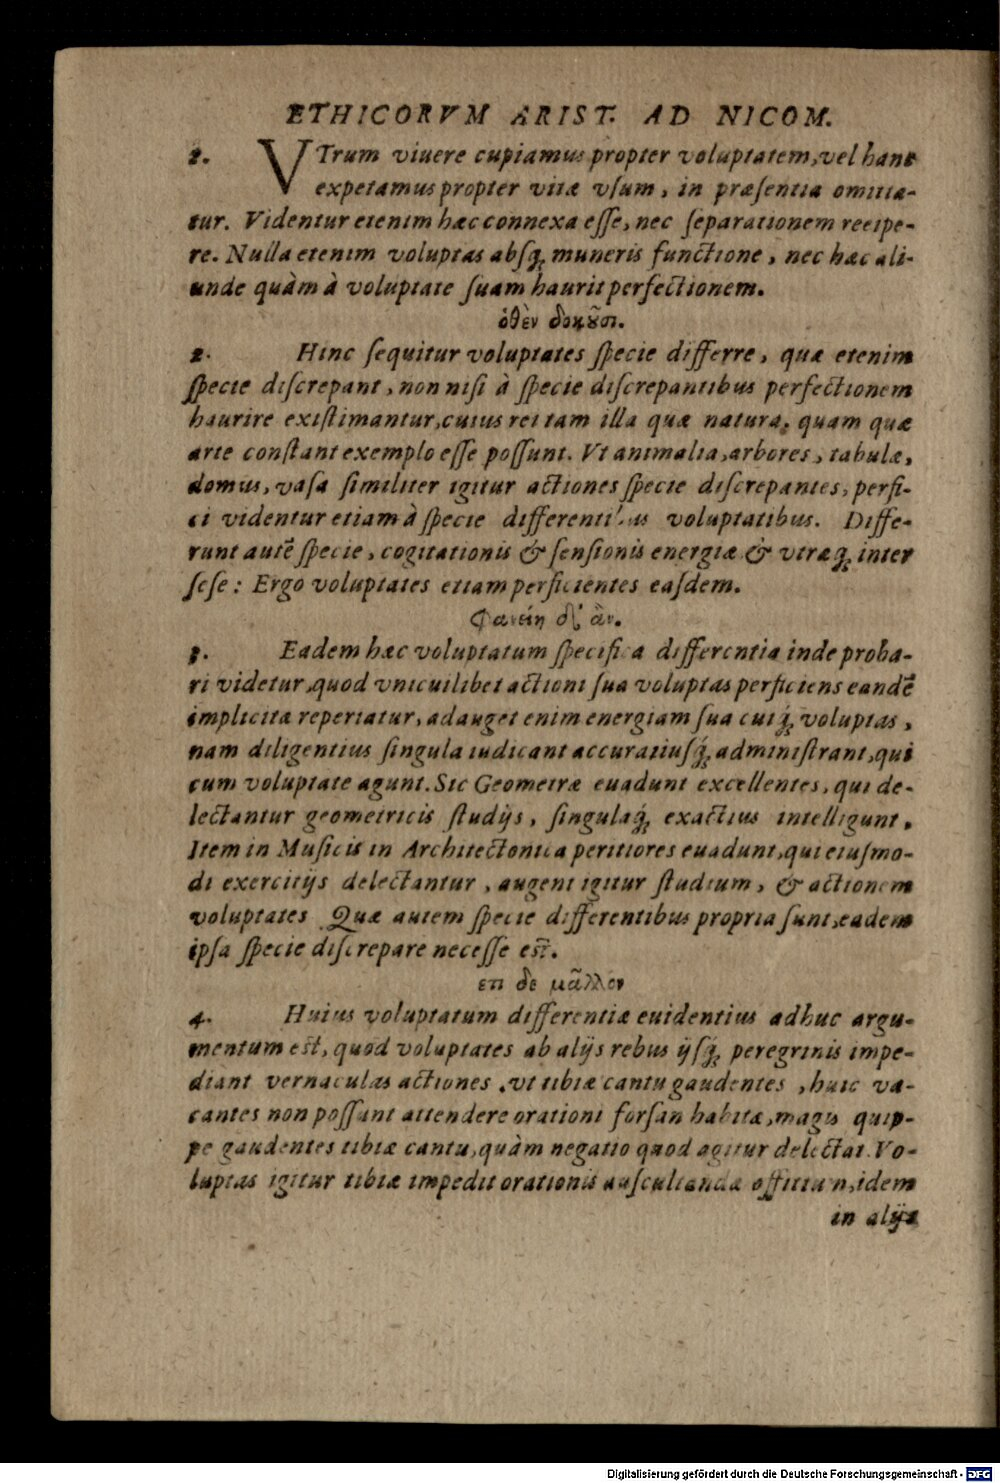 ETHICORVM ARIST. AD NICOM.
1. VTrum viuere cupiamus propter voluptatem, vel hanc
expetamus propter vitæ vſum, in præſentia omitta-
tur. Videntur etenim hæc connexa eſſe, nec ſeparationem recipe-
re. Nulla etenim voluptas abſq; muneris functione, nec hæc ali-
unde quàm à voluptate ſuam haurit perfectionem.
ὁθὲν δοκοῦσι.
2. Hinc ſequitur voluptates ſpecie differre, quæ etenim
ſpecie diſcrepant, non niſi à ſpecie diſcrepantibus perfectionem
haurire exiſtimantur, cuius rei tam illa quæ natura, quam quæ
arte conſtant exemplo eſſe poſſunt. Vt animalia, arbores, tabulæ,
domus, vaſa ſimiliter igitur actiones ſpecie diſcrepantes, perfi-
ci videntur etiam à ſpecie differentibus voluptatibus. Diffe-
runt autē ſpecie, cogitationis & ſenſionis energiæ & vtræq; inter
ſeſe: Ergo voluptates etiam perficientes eaſdem.
Φανείη δ' ἂν.
3. Eadem hæc voluptatum ſpecifica differentia inde proba-
ri videtur, quod vnicuilibet actioni ſua voluptas perficiens eandē
implicita reperiatur, adauget enim energiam ſua cuiq́; voluptas,
nam diligentius ſingula iudicant accuratiuſq́; adminiſtrant, qui
cum voluptate agunt. Sic Geometræ euadunt excellentes, qui de-
lectantur geometricis ſtudijs, ſingulaq́; exactius intelligunt.
Item in Muſicis in Architectonica peritiores euadunt, qui eiuſmo-
di exercitijs delectantur, augent igitur ſtudium, & actionem
voluptates Quæ autem ſpecie differentibus propria ſunt, eadem
ipſa ſpecie diſcrepare neceſſe est.
επι δε μᾶλλον
4. Huius voluptatum differentiæ euidentius adhuc argu-
mentum est, quod voluptates ab alijs rebus ijſq́; peregrinis impe-
diant vernaculas actiones, vt tibiæ cantu gaudentes, huic va-
cantes non poſſunt attendere orationi forſan habitæ, magis quip-
pe gaudentes tibiæ cantu, quàm negatio quod agitur delectat. Vo-
luptas igitur tibiæ impedit orationis auſcultandæ officium, idem
in alijs
Digitalisierung gefördert durch die Deutsche Forschungsgemeinschaft - DFG